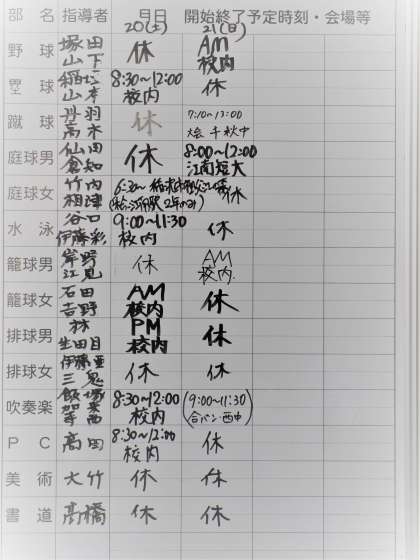 部 名 指導者 月日 開始終了予定時刻・会場等
20(土) 21(日)
野 球 塚田 山下 休 AM 校内
塁 球 稲垣 山本 8:30~12:00 校内 休
蹴 球 丹羽 高木 休 7:10~13:00 大会 千秋中
庭球男 仙田 倉知 休 8:00~12:00 江南短大
庭球女 竹内 相澤 休
水 泳 谷口 伊藤彩 9:00~11:30 校内 休
籠球男 岸野 江見 休 AM 校内
籠球女 石田 吉野 AM 校内 休
排球男 林 生田目 PM 校内 休
排球女 伊藤亜 三鬼 休 休
吹奏楽 飯塚 8:30~12:00 校内 (9:00~11:30 合バン・西中)
P C 高田 8:30~12:00 校内 休
美 術 大竹 休 休
書 道 高橋 休 休